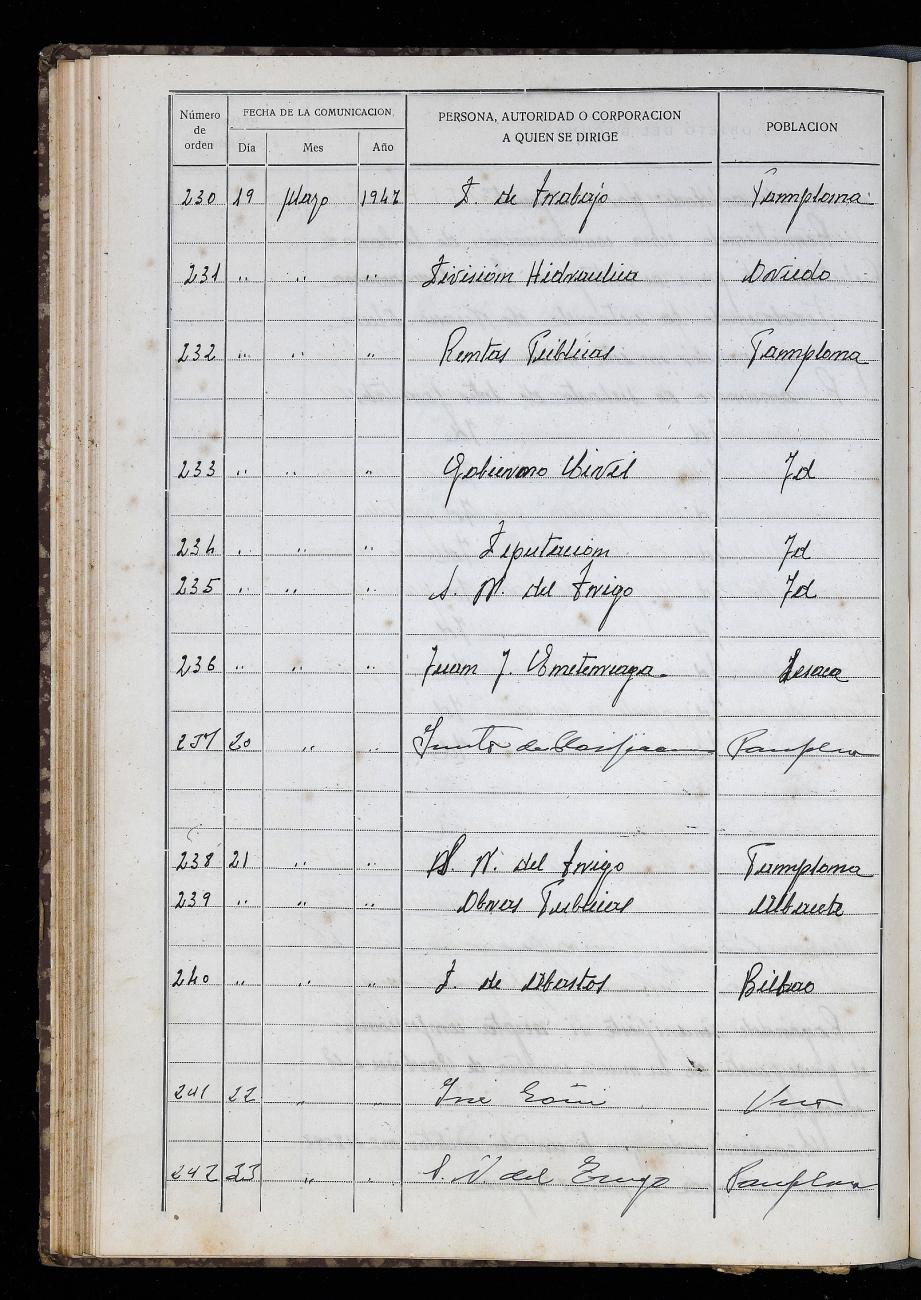 Número de orden FECHA DE LA COMUNICACION PERSONA, AUTORIDAD O CORPORACION A QUIEN SE DIRIGE POBLACION
Día Mes Año
230 19 Mayo 1947 D. de Trabajo Pamplona
231 " " " División Hidraulica Oviedo
232 " " " Rentas Publicas Pamplona
233 " " " Gobierno Civil Id
234 " " " Diputacion Id
235 " " " S. N. del Trigo Id
236 " " " Juan J. Lesaca
237 20 " " Junta de Clasificacion Pamplona
238 21 " " S. N. del Trigo Pamplona
239 " " " Obras Publicas Albacete
240 " " " D. de Abastos Bilbao
241 22 " " Jose Goñi Vera
242 23 " " S. N. del Trigo Pamplona